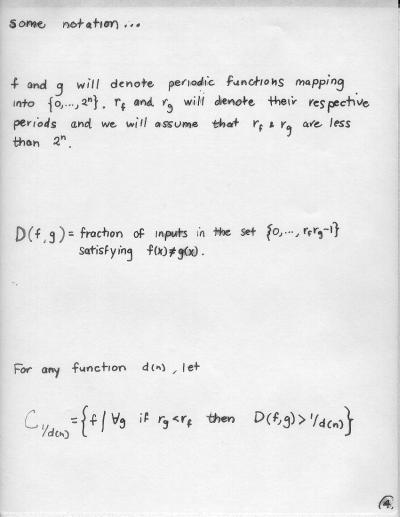 some notation...
f and g will denote periodic functions mapping
into {0,...,2ⁿ}. r_f and r_g will denote their respective
periods and we will assume that r_f & r_g are less
than 2ⁿ.
D(f,g) = fraction of inputs in the set {0,..., r_f r_g -1}
satisfying f(x)≠g(x).
For any function d(n), let
C_{1/d(n)} = {f | ∀g if r_g < r_f then D(f,g) > 1/d(n)}
4